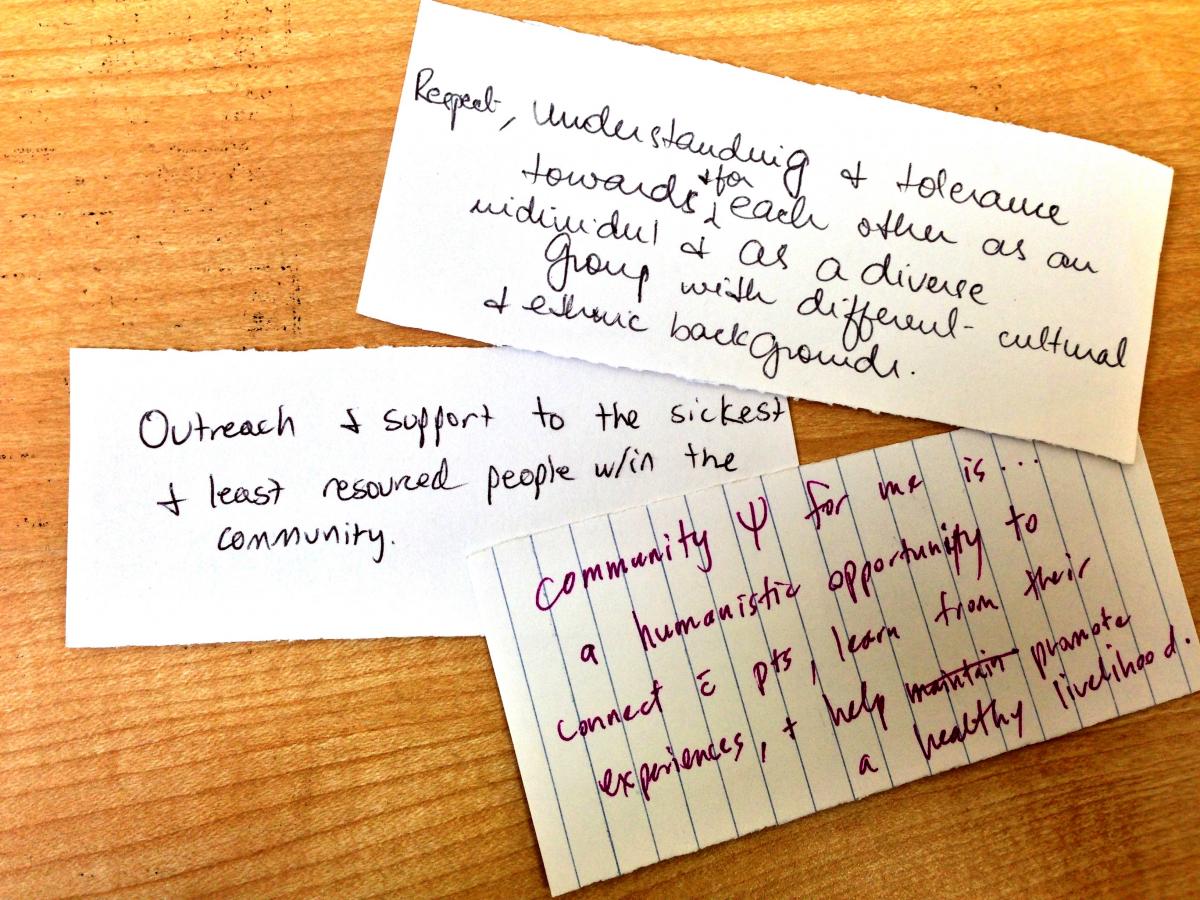 Respect, understanding & tolerance
towards & for each other as an
individul & as a diverse
Group with different cultural
& ethnic backgrounds.
Outreach & support to the sickest
& least resourced people w/in the
community.
community Ψ for me is...
a humanistic opportunity to
connect c̄ pts, learn from their
experiences, & help maintain promote
a healthy livelihood.